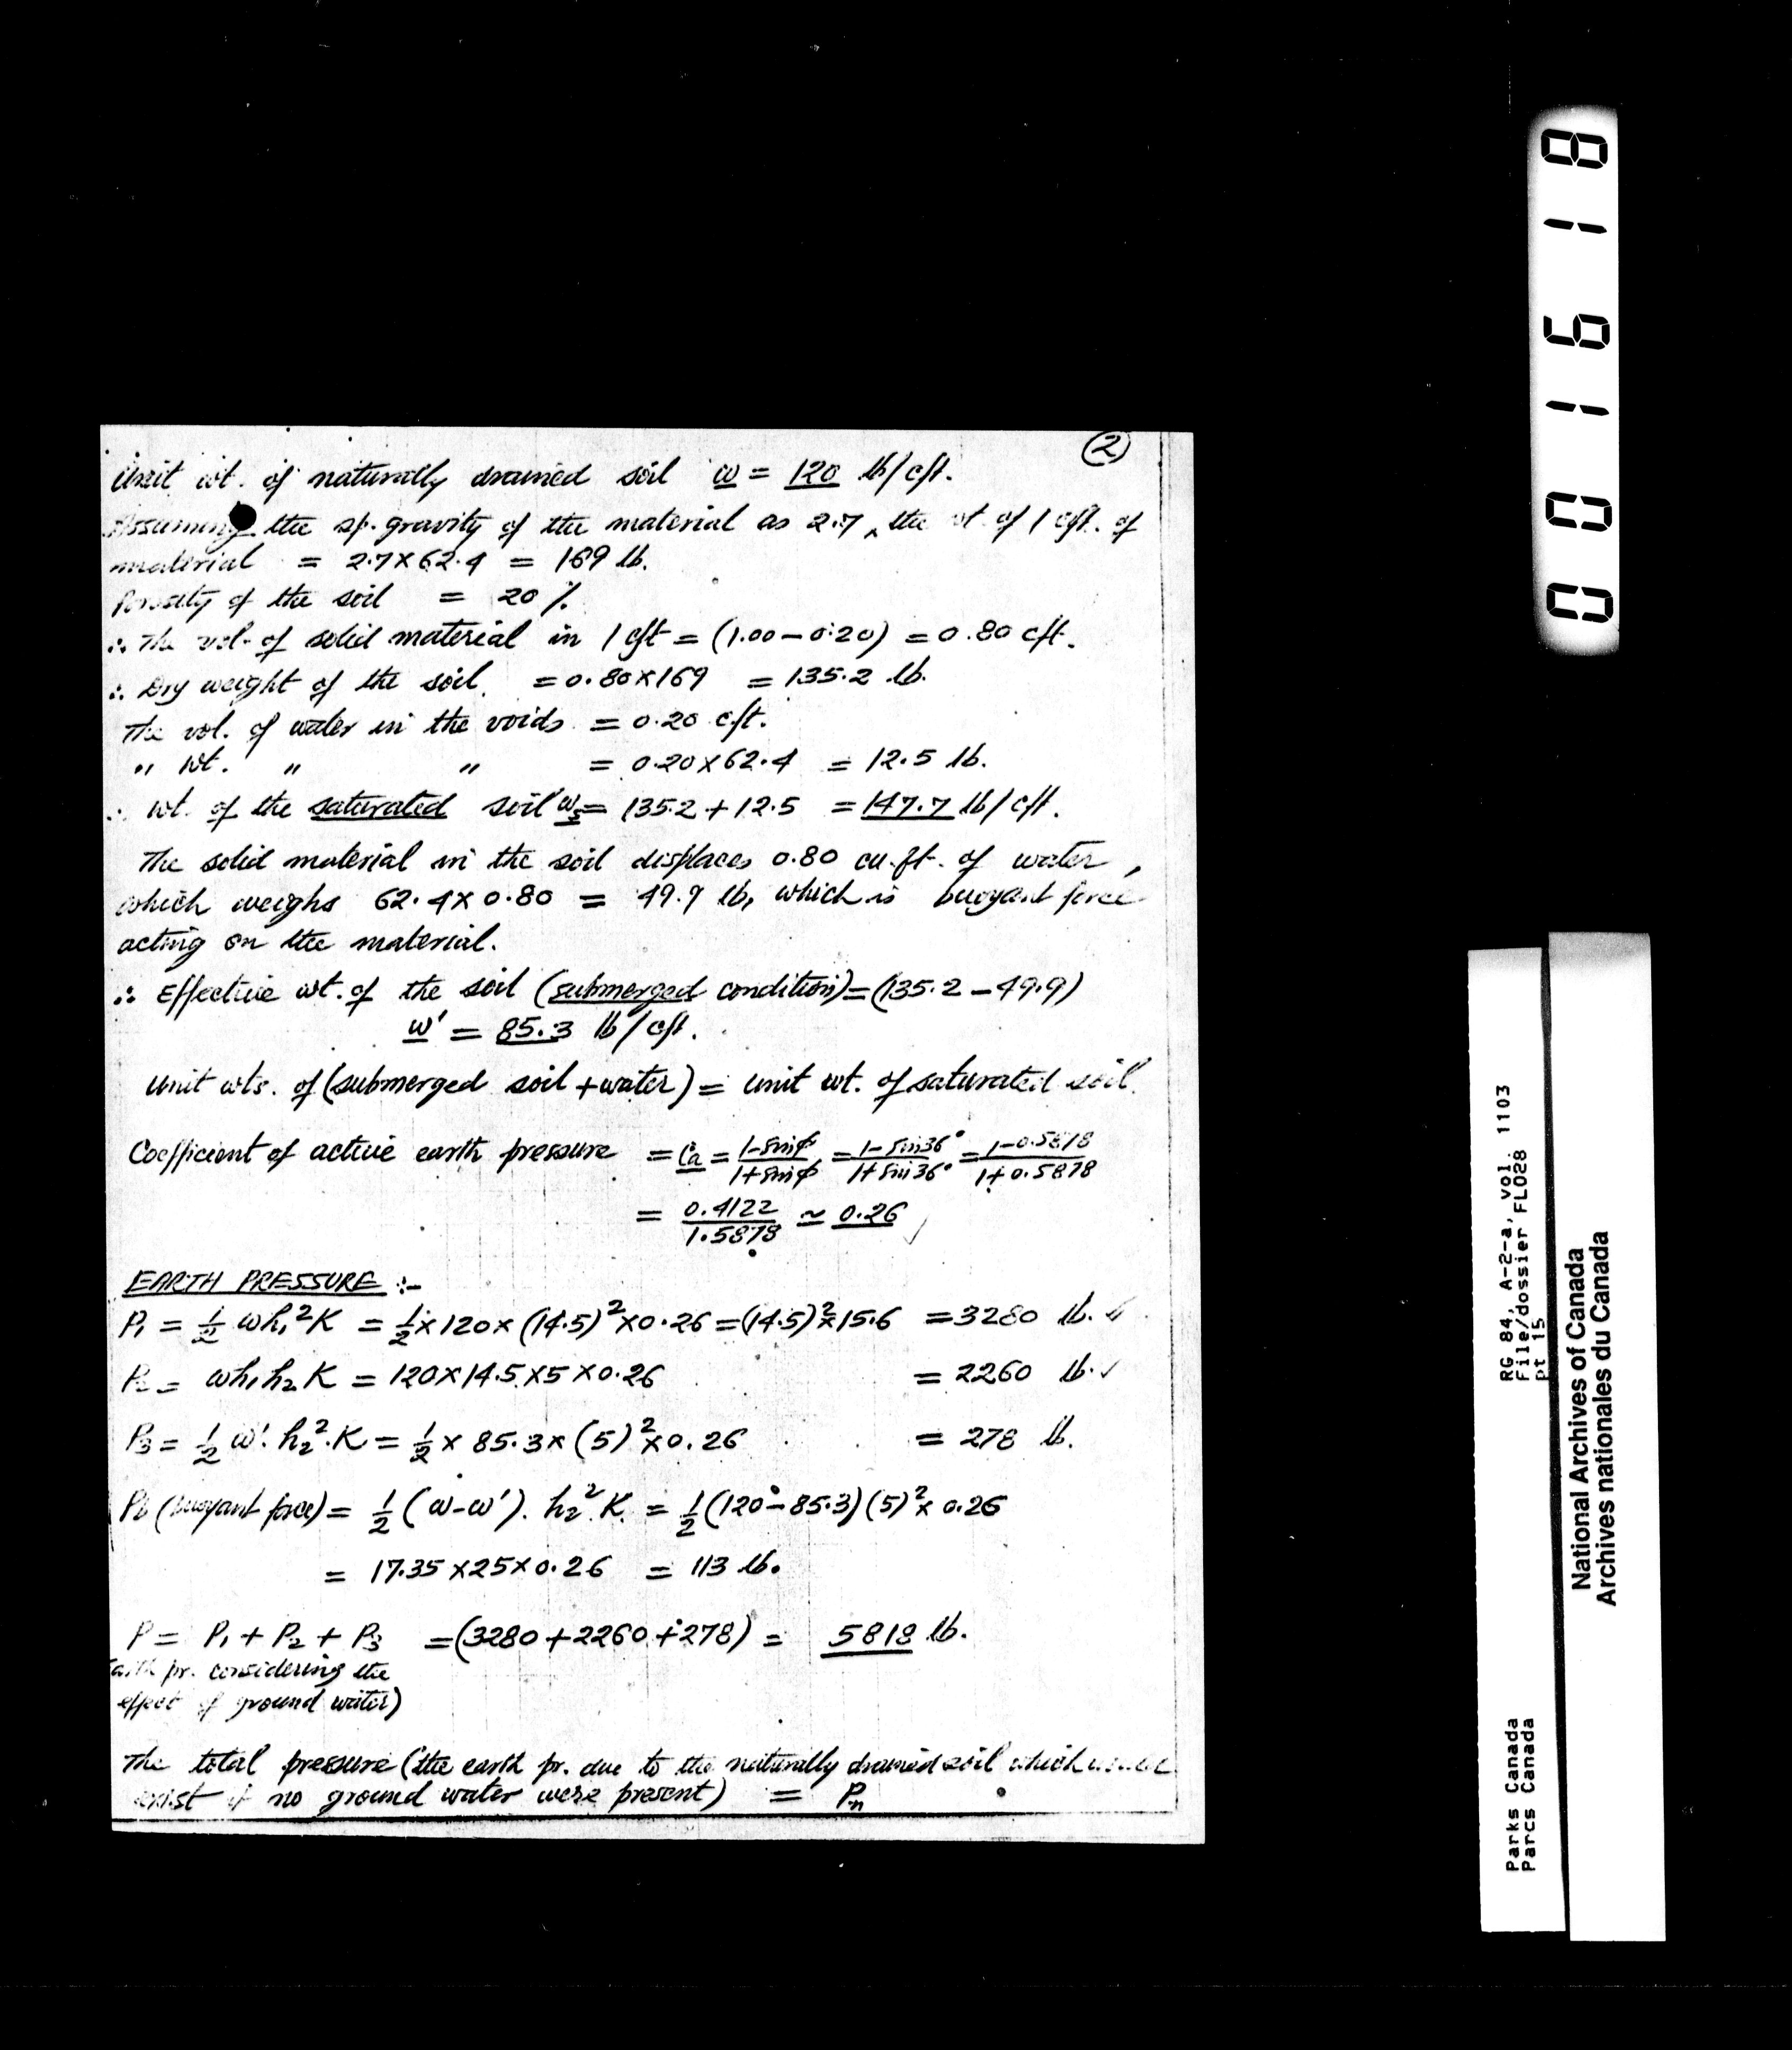 ②
Unit wt. of naturally drained soil w = 120 lb/cft.
Assuming the sp. gravity of the material as 2.7, the wt of 1 cft. of
material = 2.7 x 62.4 = 169 lb.
Porosity of the soil = 20 %
∴ The vol. of solid material in 1 cft = (1.00 - 0.20) = 0.80 cft.
∴ Dry weight of the soil = 0.80 x 169 = 135.2 lb.
The vol. of water in the voids = 0.20 cft.
" wt. " " = 0.20 x 62.4 = 12.5 lb.
∴ wt. of the saturated soil ws = 135.2 + 12.5 = 147.7 lb/cft.
The solid material in the soil displaces 0.80 cu.ft. of water,
which weighs 62.4 x 0.80 = 49.9 lb, which is buoyant force
acting on the material.
∴ Effective wt. of the soil (submerged condition) = (135.2 - 49.9)
w' = 85.3 lb/cft.
Unit wts. of (submerged soil + water) = unit wt. of saturated soil.
Coefficient of active earth pressure = Ca = (1 - sinφ)/(1 + sinφ) = (1 - sin36°)/(1 + sin36°) = (1 - 0.5878)/(1 + 0.5878)
= 0.4122/1.5878 ≃ 0.26 ✓
EARTH PRESSURE :-
P1 = ½ wh1²K = ½ x 120 x (14.5)² x 0.26 = (14.5)² x 15.6 = 3280 lb. ✓
P2 = wh1h2K = 120 x 14.5 x 5 x 0.26 = 2260 lb. ✓
P3 = ½ w'. h2².K = ½ x 85.3 x (5)² x 0.26 = 278 lb.
Pb (buoyant force) = ½ (w - w'). h2² K. = ½ (120 - 85.3) (5)² x 0.26
= 17.35 x 25 x 0.26 = 113 lb.
P = P1 + P2 + P3 = (3280 + 2260 + 278) = 5818 lb.
Earth pr. considering the
effect of ground water)
The total pressure (the earth pr. due to the naturally drained soil which would
exist if no ground water were present) = Pn
001618
RG 84, A-2-a, vol. 1103
File/dossier FLO28
pt 15
Parks Canada
Parcs Canada
National Archives of Canada
Archives nationales du Canada